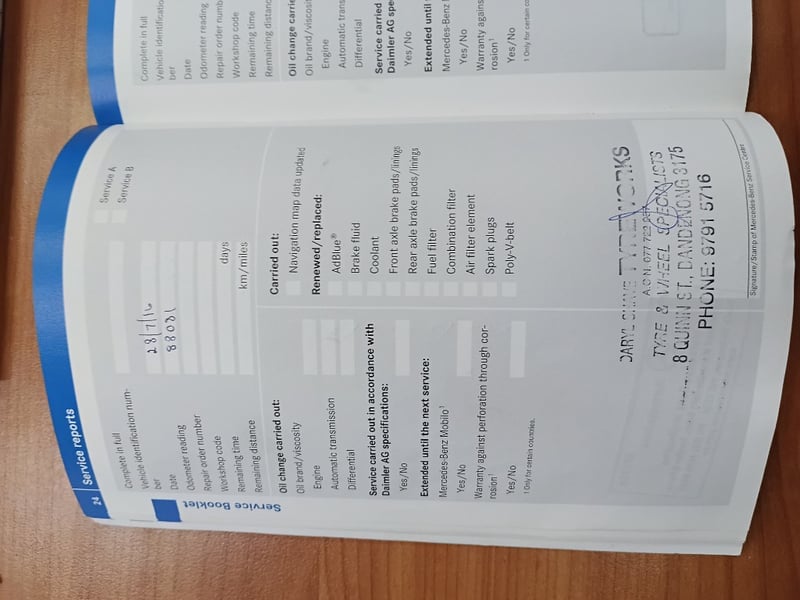 24 Service reports
Service Booklet
Complete in full
Vehicle identification num-
ber
Date 28/7/16
Odometer reading 88081
Repair order number
Workshop code
Remaining time days
Remaining distance km/miles
Service A
Service B
Oil change carried out:
Oil brand/viscosity
Engine
Automatic transmission
Differential
Service carried out in accordance with
Daimler AG specifications:
Yes/No
Extended until the next service:
Mercedes-Benz Mobilo¹
Yes/No
Warranty against perforation through cor-
rosion¹
Yes/No
¹ Only for certain countries.
Carried out:
Navigation map data updated
Renewed/replaced:
AdBlue®
Brake fluid
Coolant
Front axle brake pads/linings
Rear axle brake pads/linings
Fuel filter
Combination filter
Air filter element
Spark plugs
Poly-V-belt
TYRE WORKS
A.C.N. 077 722
TYRE & WHEEL SPECIALISTS
8 QUINN ST., DANDENONG 3175
PHONE: 9791 5716
Signature/Stamp of Mercedes-Benz Service Center
Complete in full
Vehicle identificatio
ber
Date
Odometer reading
Repair order numb
Workshop code
Remaining time
Remaining distanc
Oil change carrie
Oil brand/viscosit
Engine
Automatic trans
Differential
Service carried
Daimler AG spe
Yes/No
Extended until
Mercedes-Benz
Yes/No
Warranty agains
rosion¹
Yes/No
¹ Only for certain co